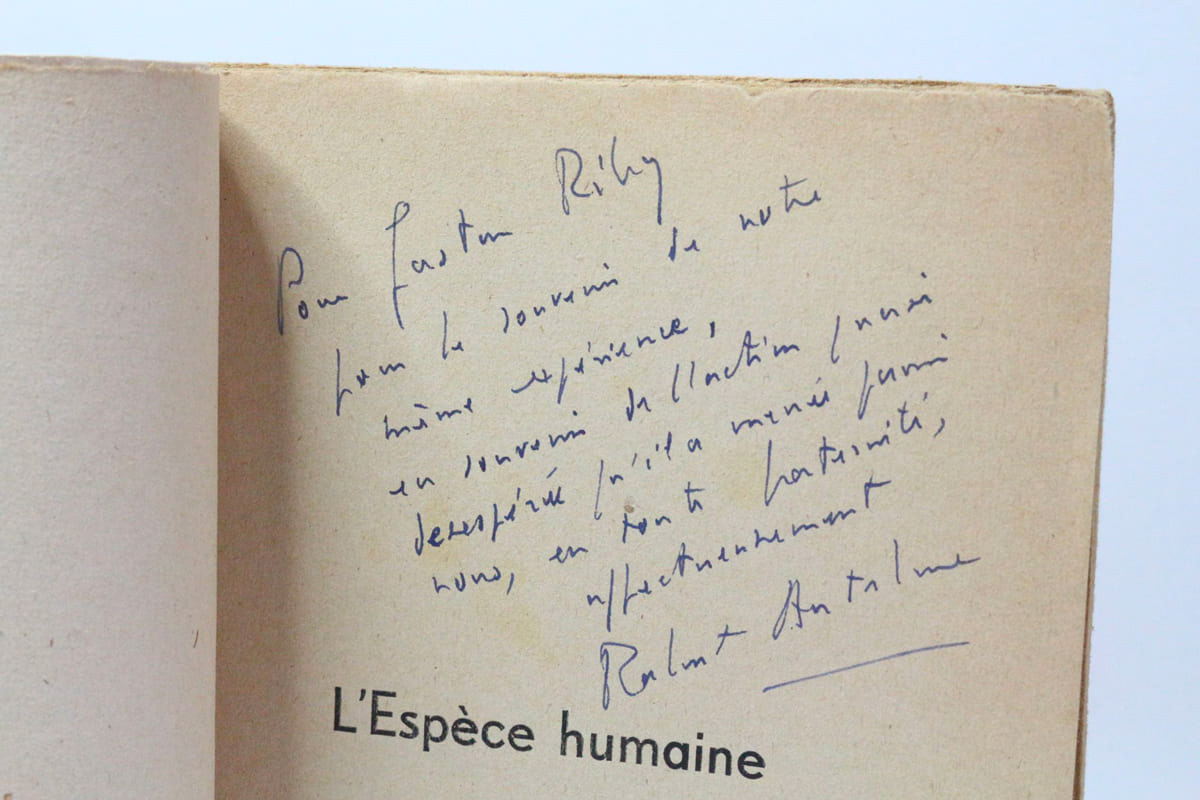 Pour Gaston Riby
pour le souvenir de notre
même expérience,
en souvenir de l'action quasi
desespérée qu'il a menée parmi
nous, en toute fraternité,
affectueusement
Robert Antelme
L'Espèce humaine